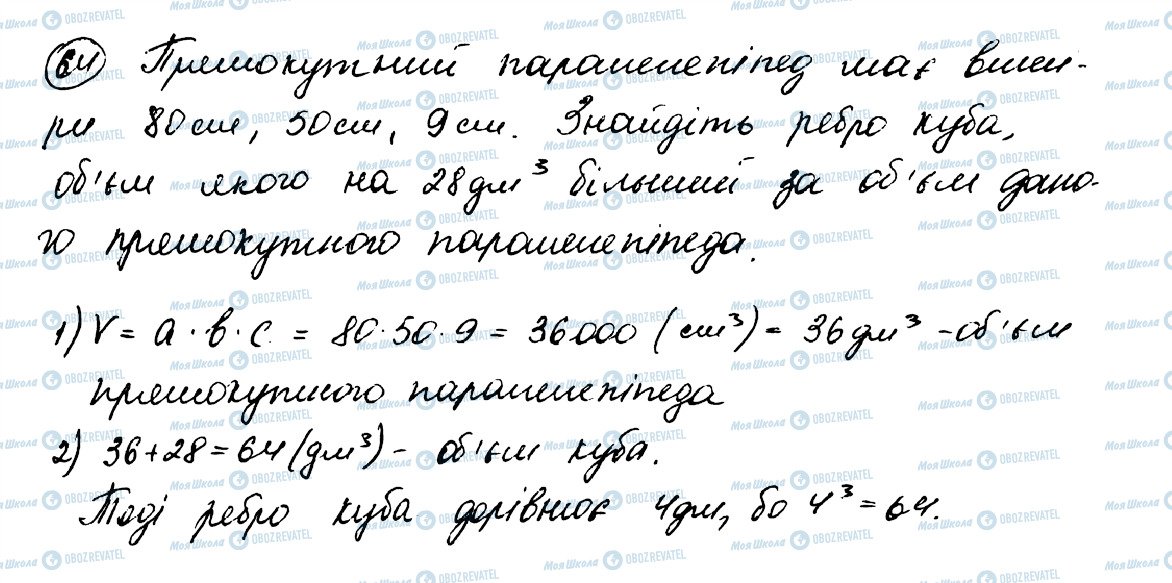 64 Прямокутний паралелепіпед має вимі-
ри 80 см, 50 см, 9 см. Знайдіть ребро куба,
об'єм якого на 28 дм³ більший за об'єм дано-
го прямокутного паралелепіпеда.
1) V = a · b · c = 80 · 50 · 9 = 36000 (см³) = 36 дм³ - об'єм
прямокутного паралелепіпеда
2) 36 + 28 = 64 (дм³) - об'єм куба.
Тоді ребро куба дорівнює 4 дм, бо 4³ = 64.
Моя Школа OBOZREVATEL